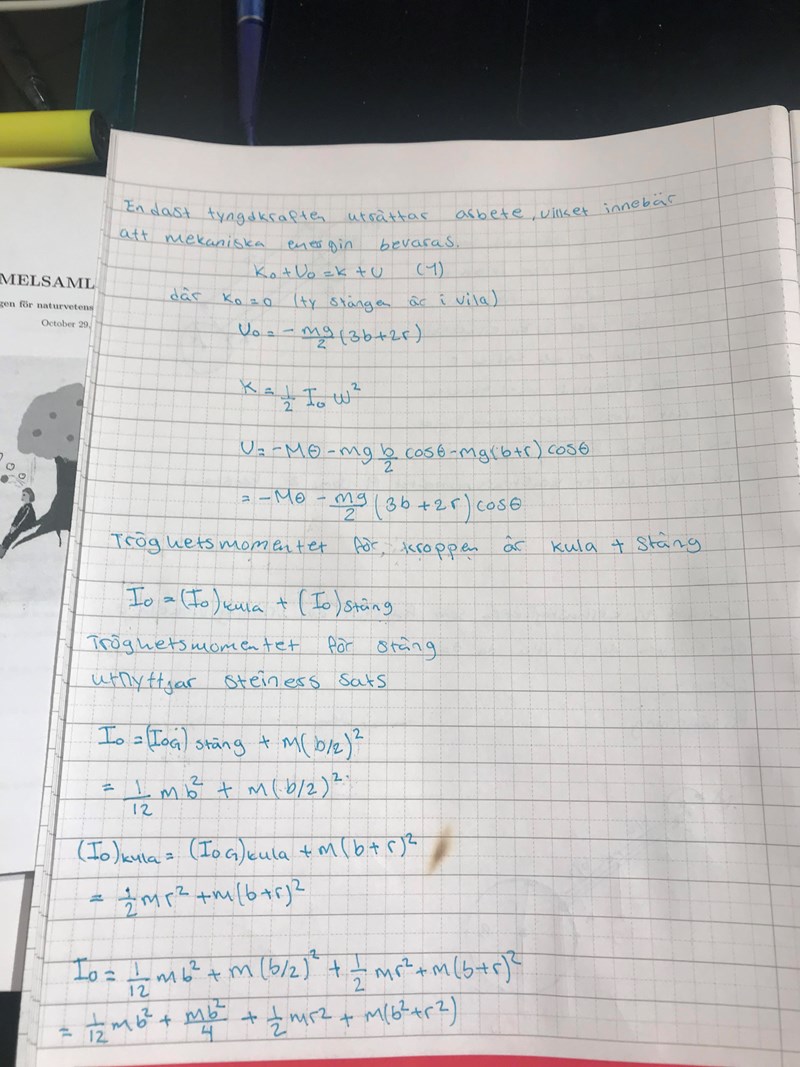 MELSAML
gen för naturvetens
October 29,
Endast tyngdkraften uträttar arbete, vilket innebär
att mekaniska energin bevaras.
K₀ + U₀ = K + U (1)
där K₀ = 0 (ty stången är i vila)
U₀ = - mg/2 (3b + 2r)
K = 1/2 I₀ ω²
U = -Mθ - mg b/2 cosθ - mg(b+r) cosθ
= -Mθ - mg/2 (3b + 2r) cosθ
Tröghetsmomentet för kroppen är kula + Stång
I₀ = (I₀)kula + (I₀)stång
Tröghetsmomentet för stång
utnyttjar steiness sats
I₀ = (I₀G) stång + m(b/2)²
= 1/12 mb² + m(b/2)²
(I₀)kula = (I₀G)kula + m(b+r)²
= 1/2 mr² + m(b+r)²
I₀ = 1/12 mb² + m(b/2)² + 1/2 mr² + m(b+r)²
= 1/12 mb² + mb²/4 + 1/2 mr² + m(b²+r²)